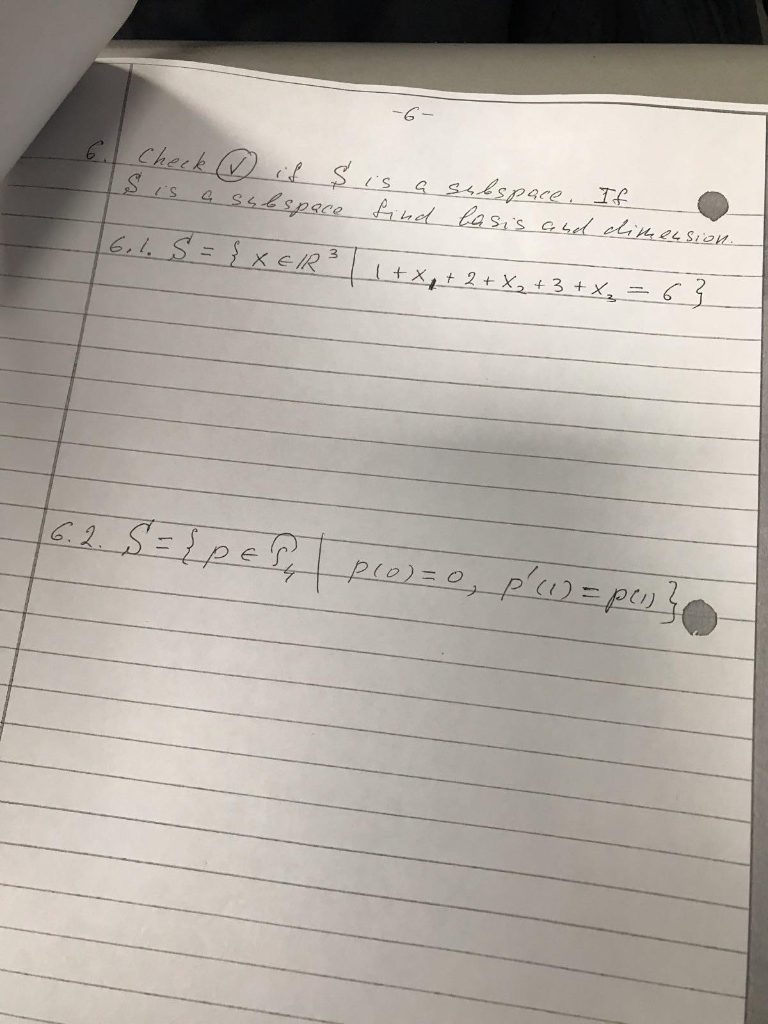 -6-
6. Check ✓ if S is a subspace. If
S is a subspace find basis and dimension.
6.1. S = { x ∈ ℝ³ | 1 + x₁ + 2 + x₂ + 3 + x₃ = 6 }
6.2. S = { p ∈ P₄ | p(0) = 0, p'(1) = p(1) }